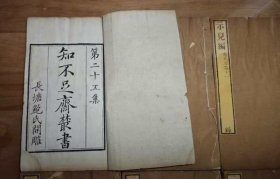 第二十五集
知不足齋叢書
長塘鮑氏開雕
示兒編